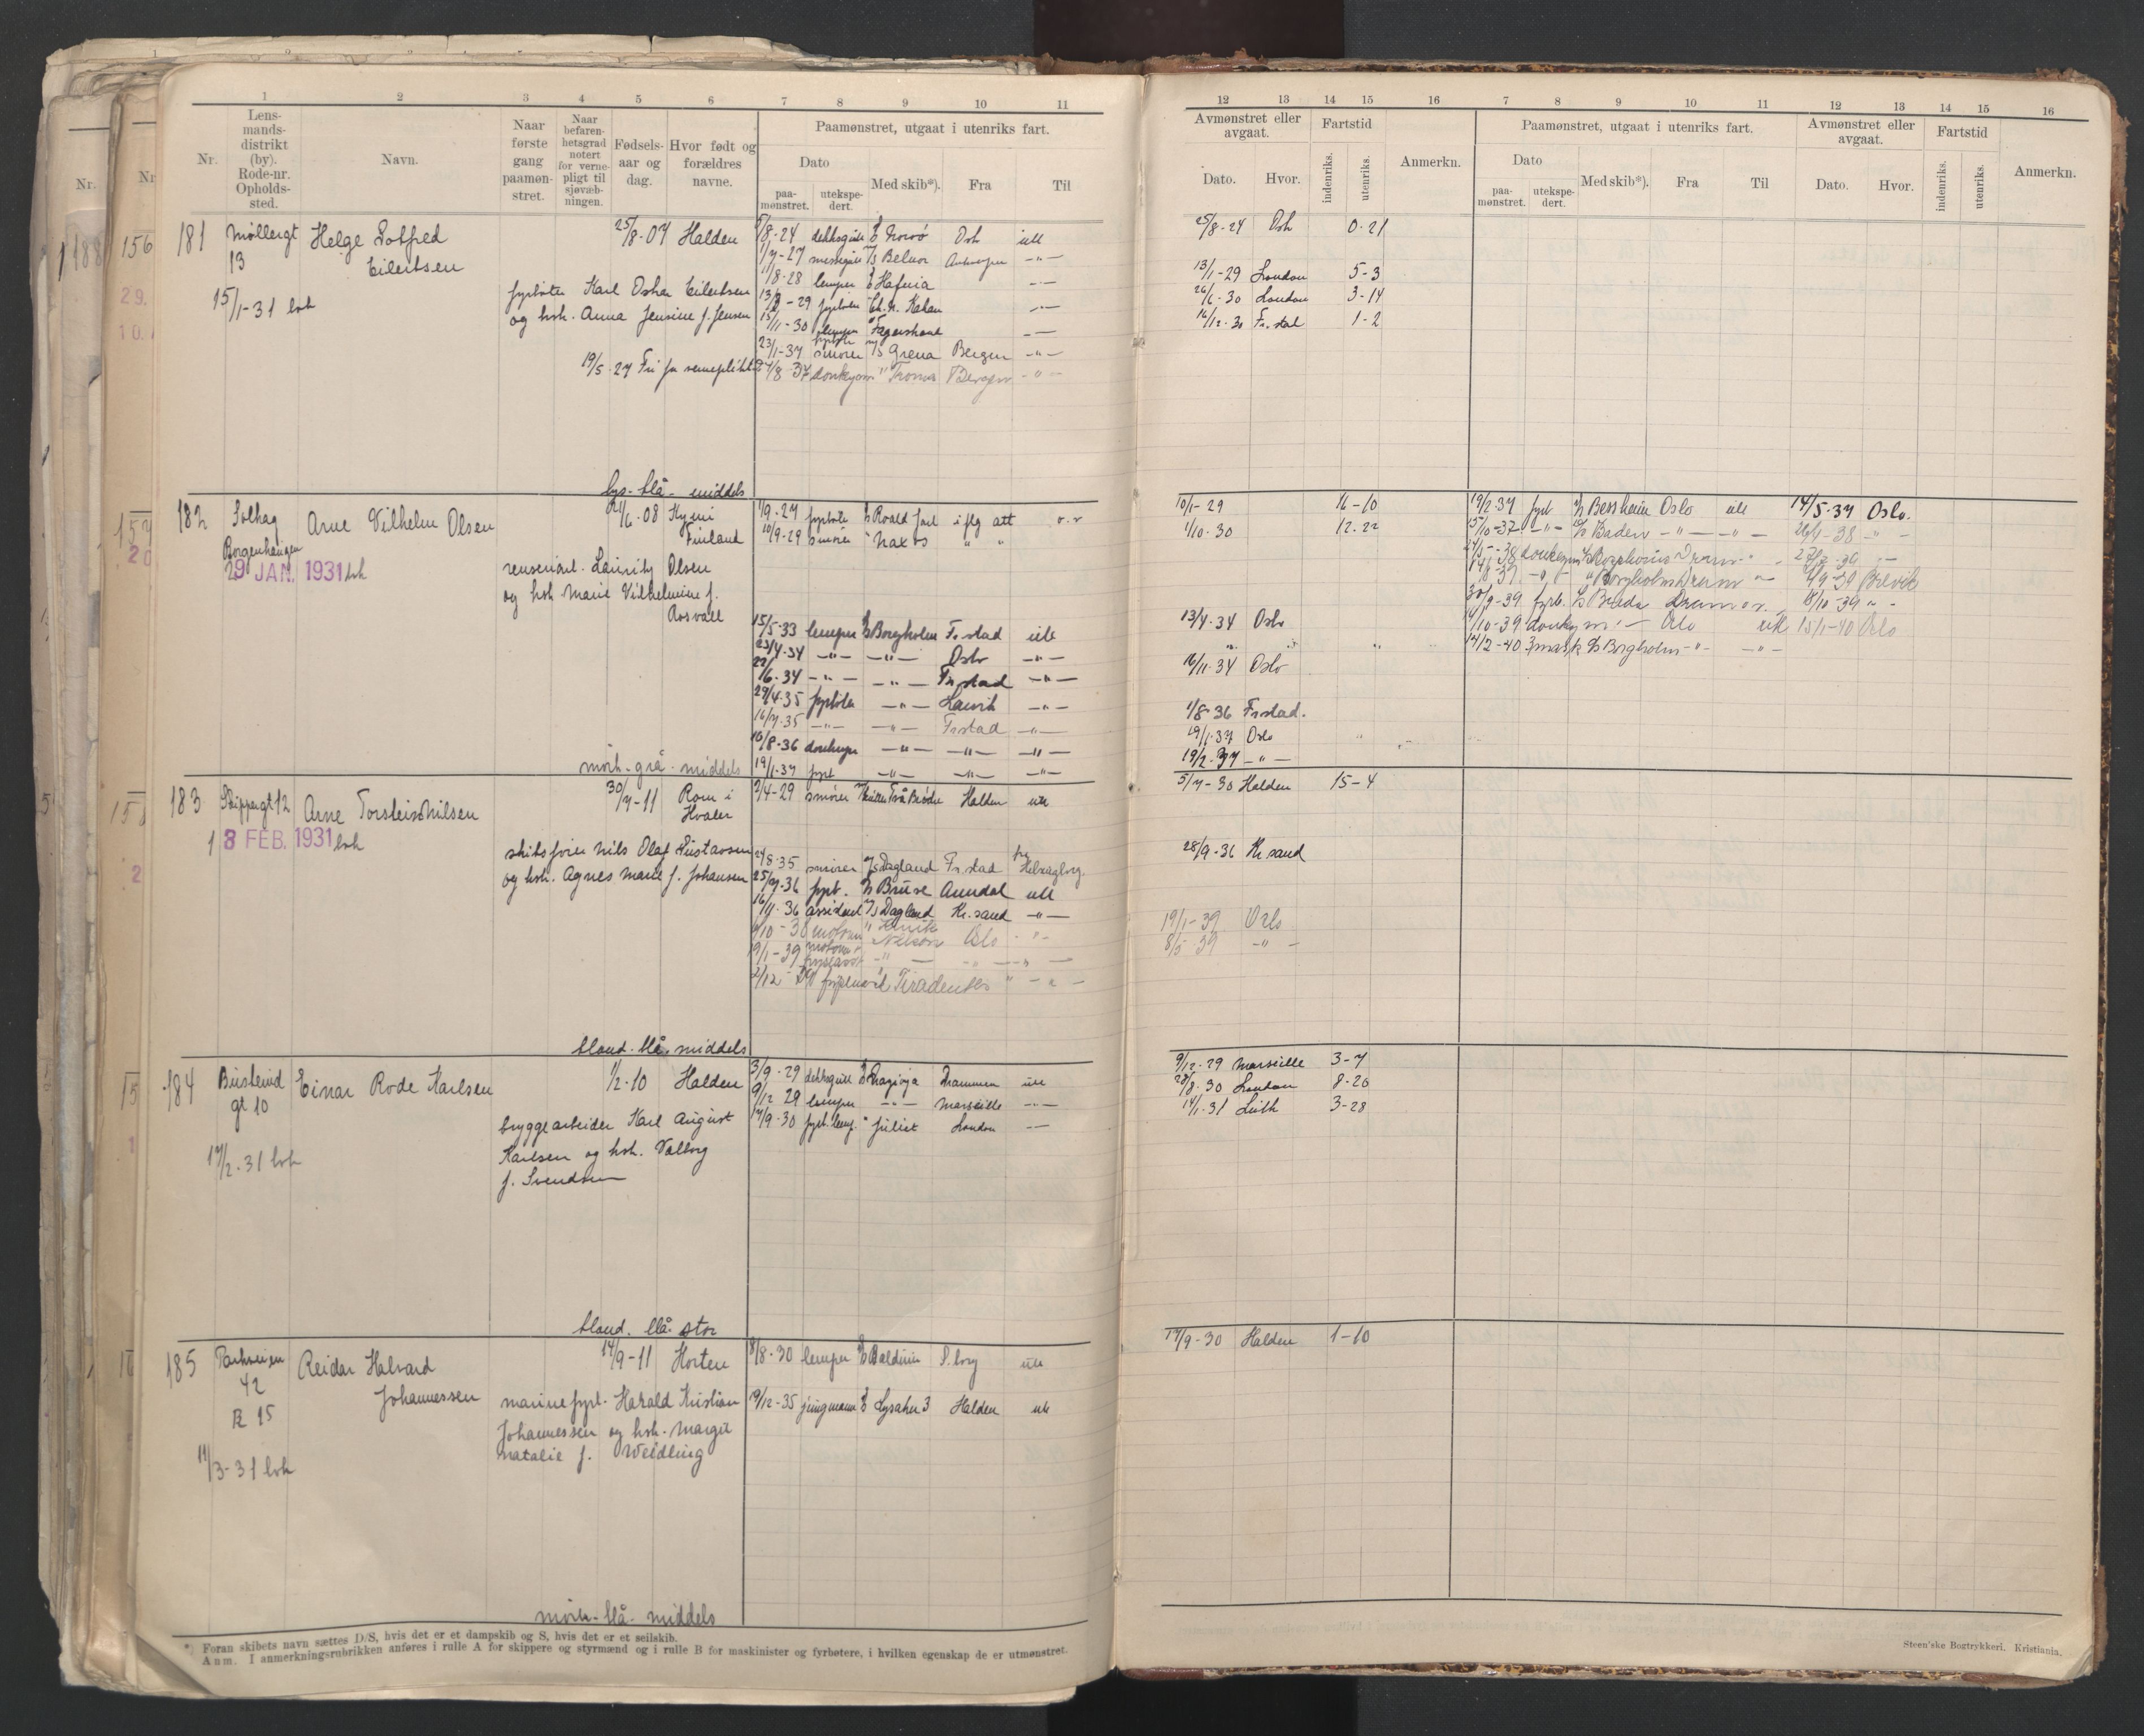 1 2 3 4 5 6 7 8 9 10 11
Nr.
Lens-
mands-
distrikt
(by).
Rode-nr.
Opholds-
sted.
Navn.
Naar
første
gang
paamøn-
stret.
Naar
befaren-
hetsgrad
notert
for verne-
pligt til
sjøvæb-
ningen.
Fødsels-
aar og
dag.
Hvor født og
forældres
navne.
Paamønstret, utgaat i utenriks fart.
Dato
paa-
mønstret.
utekspe-
dert.
Med skib*).
Fra
Til
181 Møllergt 13
Helge Gotfred
Eilertsen
25/8-07 Halden
15/1-31 lvk
fyrbøter Karl Oskar Eilertsen
og hsh. Anna Jensine f. Jensen
19/5-27 Fri for verneplikt
5/8-24 dekksgutt Oslo utl
1/7-27 messegutt M/S Belnor Antwerpen -"-
1/8-28 lemper Hafnia -"-
-29 fyrbøter Chr. Kahan -"-
15/11-30 lemper Fagerstrand -"-
23/1-37 smører M/S Grena Bergen -"-
/8-37 donkeym " Troma Bergen -"-
lys-blå-middels
182 Solhaug
Borgenhaugen
29 JAN. 1931 lvk
Arne Vilhelm Olsen
21/6-08 Kymi
Finland
renseriarb. Lauritz Olsen
og hsh Marie Vilhelmine f.
Aasvall
1/9-27 fyrbøter D/S Roald Jarl iflg att o.s
10/9-29 smører " Naxos " "
15/5-33 lemper D/S Borgholm Fr.stad utl
23/4-34 -"- -"- Oslo -"-
22/6-34 -"- -"- Fr.stad -"-
29/4-35 fyrbøter -"- Larvik -"-
16/7-35 -"- -"- Fr.stad -"-
10/8-36 donkeym -"- -"- -"-
19/1-37 fyrb -"- -"- -"-
mørk-grå-middels
183 Skippergt 12
18 FEB. 1931 lvk
Arne Torstein Nilsen
30/7-11 Rom i
Hvaler
skibsfører Nils Olaf Gustavsen
og hsh. Agnes Marie f. Johansen
2/4-29 smører Två Bröder Halden utl
27/8-35 smører M/S Dagland Fr.stad fra Helsingborg
25/7-36 fyrb. D/S Bruse Arendal utl
16/11-36 assistent M/S Dagland Kr.sand -"-
/10-38 motorm " Henrik Oslo -"-
9/1-39 motorm -"- -"-
2/12 Tiradentes " -"-
blond-blå-middels
184 Busterud
gt 10
17/2-31 lvk
Einar Rode Karlsen
1/2-10 Halden
bryggearbeider Karl August
Karlsen og hsh. Valborg
f. Svendsen
3/9-29 dekksgutt Drammen utl
9/12 29 lemper -"- Marseille -"-
17/9-30 fyrb.lemp. " Juliet London -"-
blond-blå-stor
185 Parkveien
42
R 15
11/3-31 lvk
Reidar Halvard
Johannessen
14/9-11 Horten
marinefyrb. Harald Kristian
Johannessen og hsh. Margit
Natalie f. Weidling
8/8-30 lemper D/S Balduin S.borg utl
19/12-35 jungmann D/S Lysaker 3 Halden utl
mørk-blå-middels
*) Foran skibets navn sættes D/S, hvis det er et dampskib og S, hvis det er et seilskib.
Anm. I anmerkningsrubrikken anføres i rulle A for skippere og styrmænd og i rulle B for maskinister og fyrbøtere, i hvilken egenskap de er utmønstret.
12 13 14 15 16 7 8 9 10 11 12 13 14 15 16
Avmønstret eller
avgaat.
Fartstid
Dato.
Hvor.
indenriks.
utenriks.
Anmerkn.
Paamønstret, utgaat i utenriks fart.
Dato
paa-
mønstret.
utekspe-
dert.
Med skib*).
Fra
Til
Avmønstret eller
avgaat.
Dato.
Hvor.
Fartstid
indenriks.
utenriks.
Anmerkn.
25/8-24 Oslo 0-21
13/1-29 London 5-3
26/6-30 London 3-14
16/12-30 Fr.stad 1-2
10/1-29 16-10
1/10-30 12-22
13/4-34 Oslo
16/11-34 Oslo
1/8-36 Fr.stad.
19/1-37 Oslo
19/2-37 -"-
19/2-37 fyrb D/S Bessheim Oslo utl 14/5-37 Oslo.
15/10-37 -"- D/S Baden -"- -"- 26/1-38 -"-
-38 donkeym D/S Borgholm Dramm " -39 -"-
14/8-39 -"- " Borgholm Dramm -"- 4/9-39 Brevik
30/9-39 fyrb. D/S Breda Drammen 18/10-39 "-
/10-39 donkeym -"- Oslo utl 15/1-40 Oslo
14/2-40 3 mask D/S Borgholm -"- -"-
5/7-30 Halden 15-4
28/9-36 Kr.sand
19/1-39 Oslo
8/5-39 -"-
9/12-29 Marseille 3-7
28/8-30 London 8-20
14/1-31 Leith 3-28
17/9-30 Halden 1-10
Steen'ske Bogtrykkeri. Kristiania.
Nr.
188
Nr
156
29.
10.
157
20
158
2
15
1
16